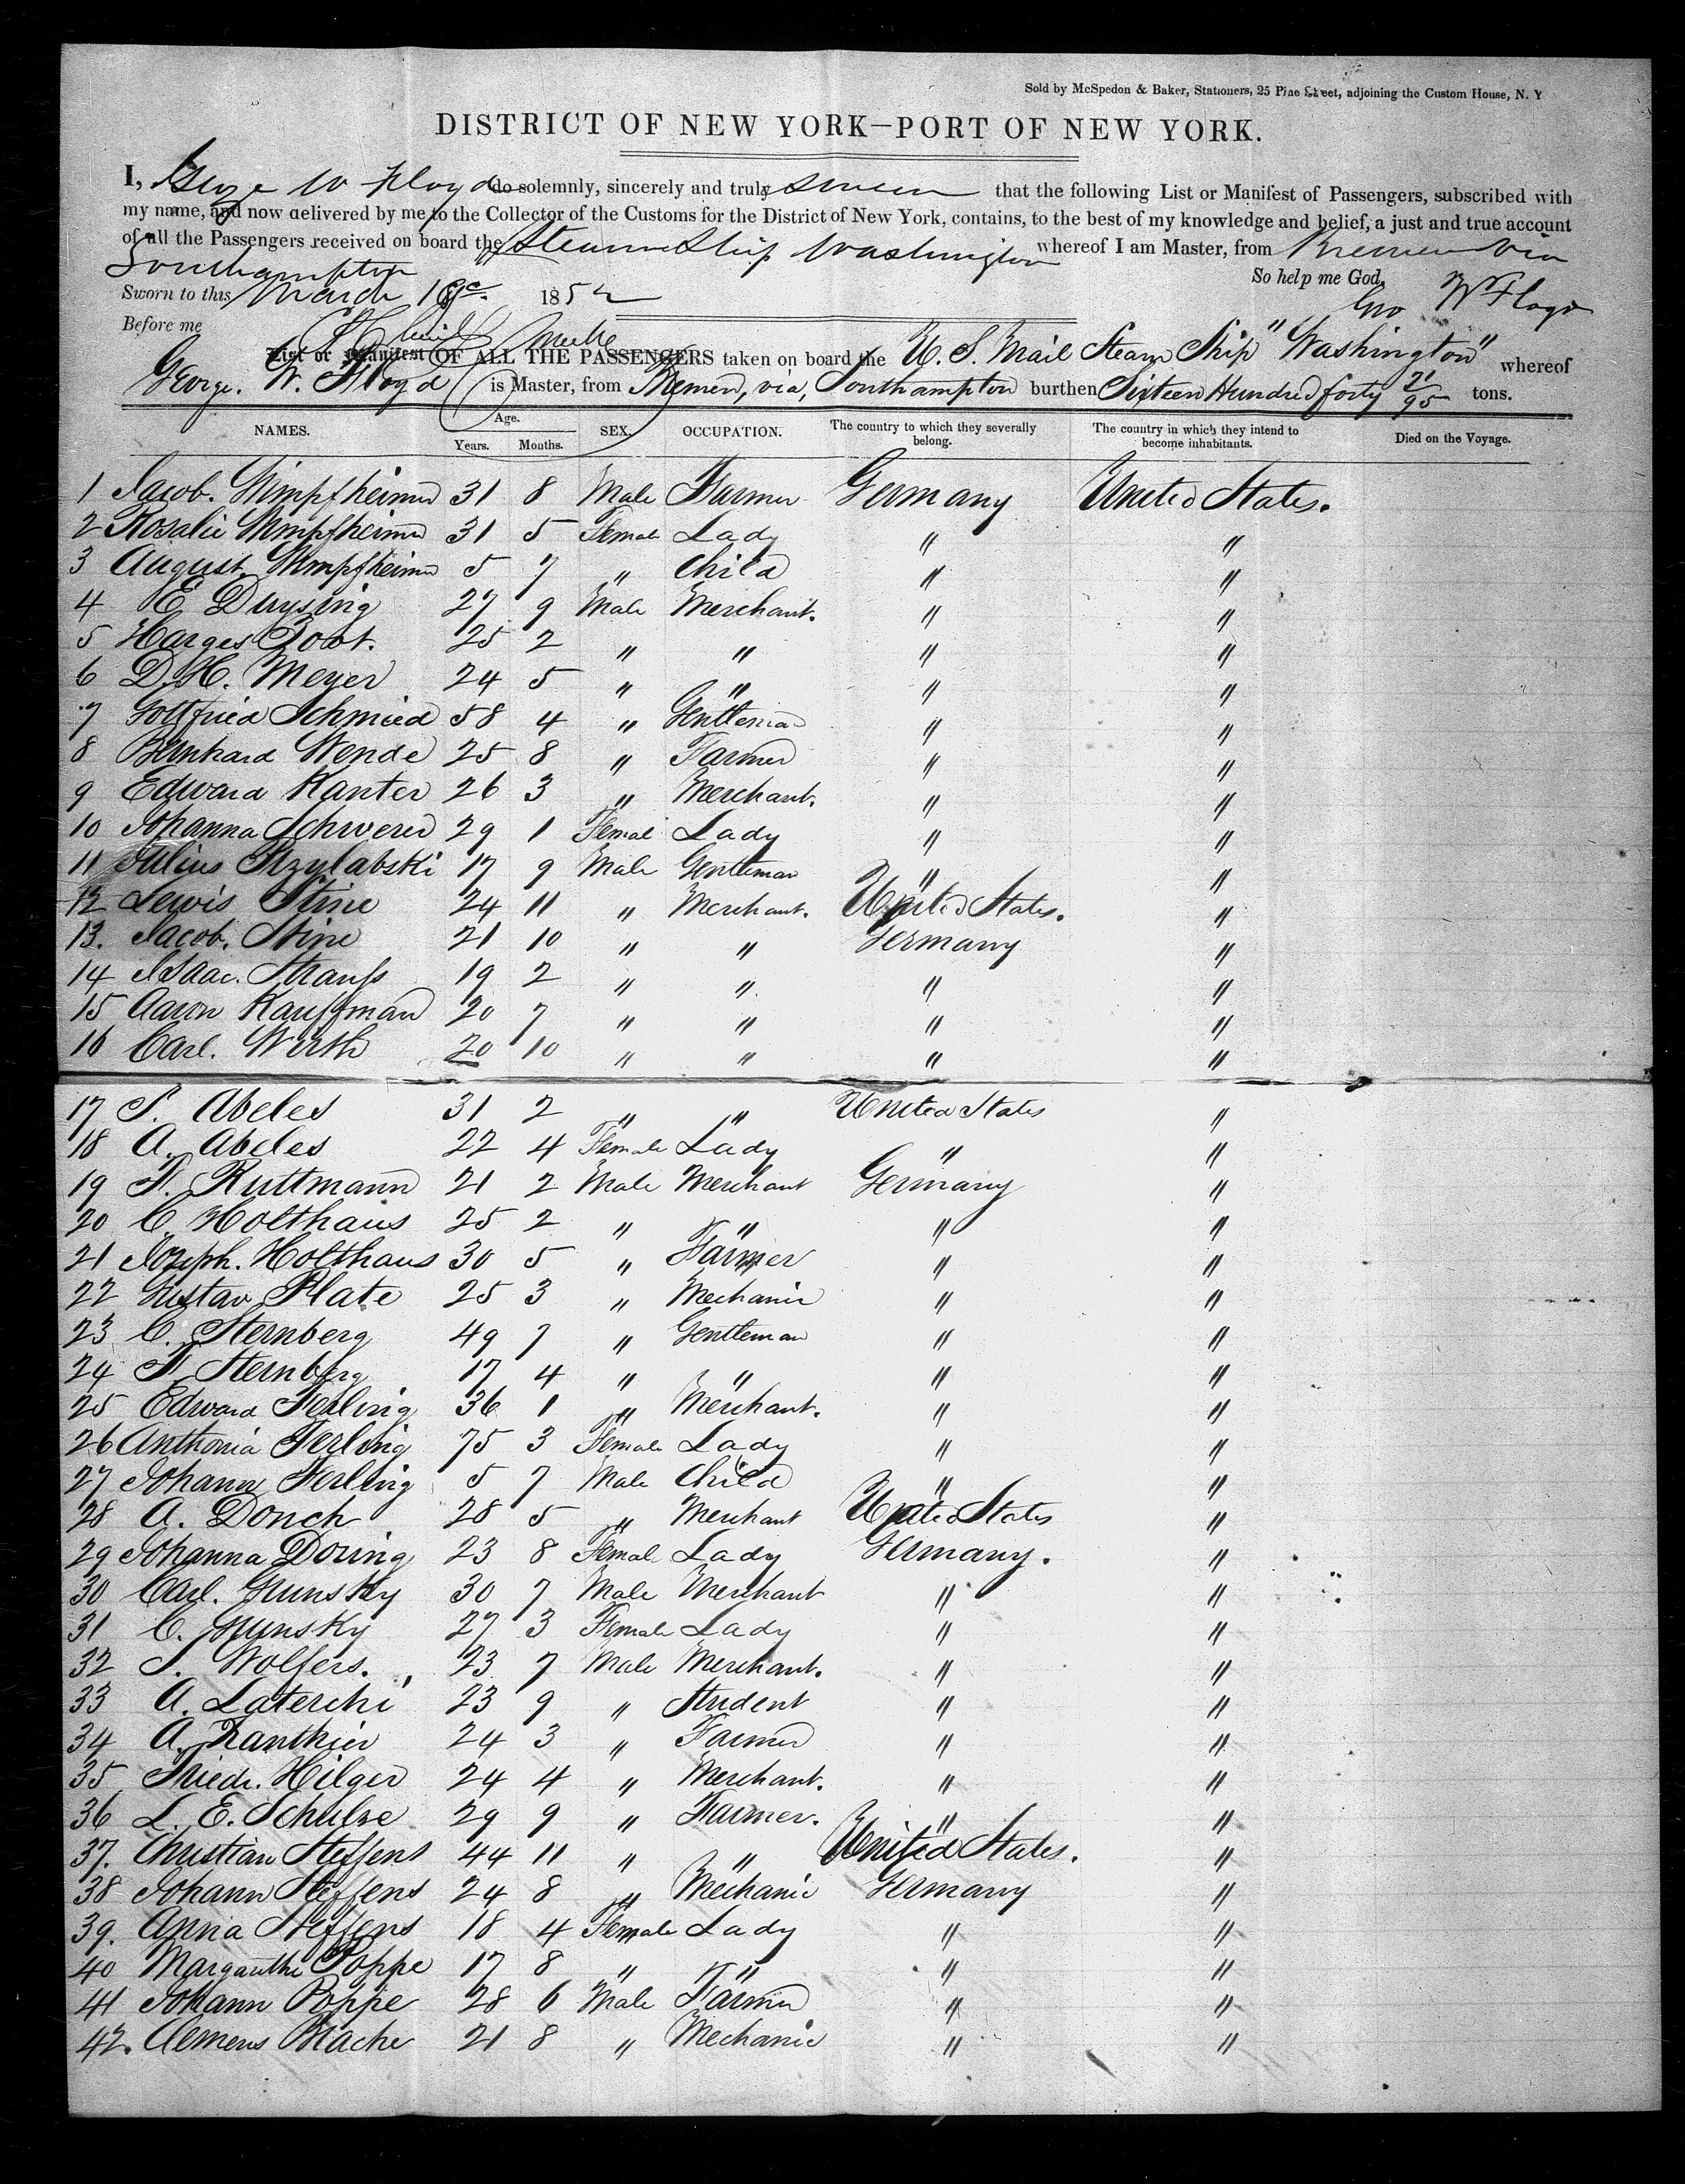 Sold by McSpedon & Baker, Stationers, 25 Pine Street, adjoining the Custom House, N. Y
DISTRICT OF NEW YORK—PORT OF NEW YORK.
I, George W Floyd do solemnly, sincerely and truly swear that the following List or Manifest of Passengers, subscribed with
my name, and now delivered by me to the Collector of the Customs for the District of New York, contains, to the best of my knowledge and belief, a just and true account
of all the Passengers received on board the Steam Ship Washington whereof I am Master, from Bremen via
Southampton So help me God,
Sworn to this March 18 1852 Geo W Floyd
Before me
List or Manifest OF ALL THE PASSENGERS taken on board the U. S. Mail Steam Ship "Washington" whereof
George. W. Floyd is Master, from Bremen, via, Southampton burthen Sixteen Hundred forty 71/95 tons.
NAMES. Age. Years. Months. SEX. OCCUPATION. The country to which they severally belong. The country in which they intend to become inhabitants. Died on the Voyage.
1 Jacob. Gimpfheimer 31 8 Male Farmer Germany United States.
2 Rosalie Gimpfheimer 31 5 Female Lady " "
3 August. Gimpfheimer 5 7 " Child " "
4 E Duysing 27 9 Male Merchant. " "
5 Harges 25 2 " " " "
6 D. H. Meyer 24 5 " " " "
7 Gottfried Schmied 58 4 " Gentleman " "
8 Bernhard Wende 25 8 " Farmer " "
9 Edward Kanter 26 3 " Merchant. " "
10 Johanna Schwerer 29 1 Femal Lady " "
11 Julius Rzylabski 17 9 Male Gentleman " "
12 Lewis Stine 24 11 " Merchant. United States. "
13. Jacob. Stine 21 10 " " Germany "
14 Isaac. Strauss 19 2 " " " "
15 Aaron Kauffman 20 7 " " " "
16 Carl. Wirth 20 10 " " " "
17 S. Abeles 31 2 " " United States "
18 A. Abeles 22 4 Female Lady " "
19 F. Ruttmann 21 2 Male Merchant Germany "
20 C. Holthaus 25 2 " " " "
21 Joseph. Holthaus 30 5 " Farmer " "
22 Gustav Plate 25 3 " Mechanic " "
23 C. Sternberg 49 7 " Gentleman " "
24 F. Sternberg 17 4 " " " "
25 Edward Ferling 36 1 " Merchant. " "
26 Anthonia Ferling 75 3 Female Lady " "
27 Johann Ferling 5 7 Male Child " "
28 A. Donch 28 5 " Merchant United States "
29 Johanna Doring 23 8 Female Lady Germany. "
30 Carl. Grunsky 30 7 Male Merchant " "
31 C. Grunsky 27 3 Female Lady " "
32 S. Wolfers. 23 7 Male Merchant. " "
33 A. Laterchi 23 9 " Student " "
34 A. Xanthier 24 3 " Farmer " "
35 Friedr. Hilger 24 4 " Merchant. " "
36 L. E. Schulze 29 9 " Farmer. " "
37. Christian Steffens 44 11 " " United States. "
38 Johann Steffens 24 8 " Mechanic Germany "
39. Anna Steffens 18 4 Female Lady " "
40 Margarethe Poppe 17 8 " " " "
41 Johann Poppe 28 6 Male Farmer " "
42. Clemens Blache 21 8 " Mechanic " "